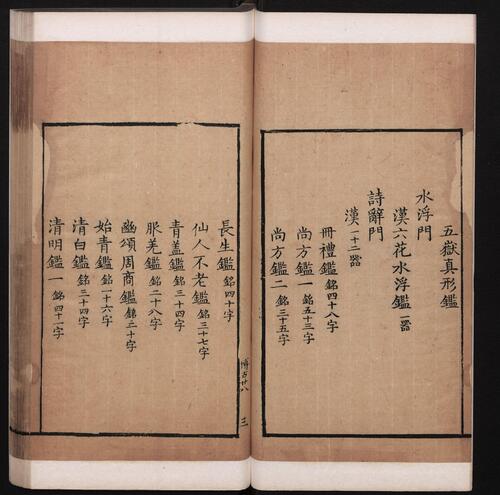 五嶽真形鑑
水浮門
漢六花水浮鑑一器
詩辭門
漢一十二器
冊禮鑑銘四十八字
尚方鑑一銘五十三字
尚方鑑二銘三十五字
長生鑑銘四十字
仙人不老鑑銘三十七字
青蓋鑑銘三十四字
服羌鑑銘二十八字
幽頌周商鑑銘二十字
始青鑑銘一十六字
清白鑑銘三十四字
清明鑑一銘四十一字
博古廿八
三